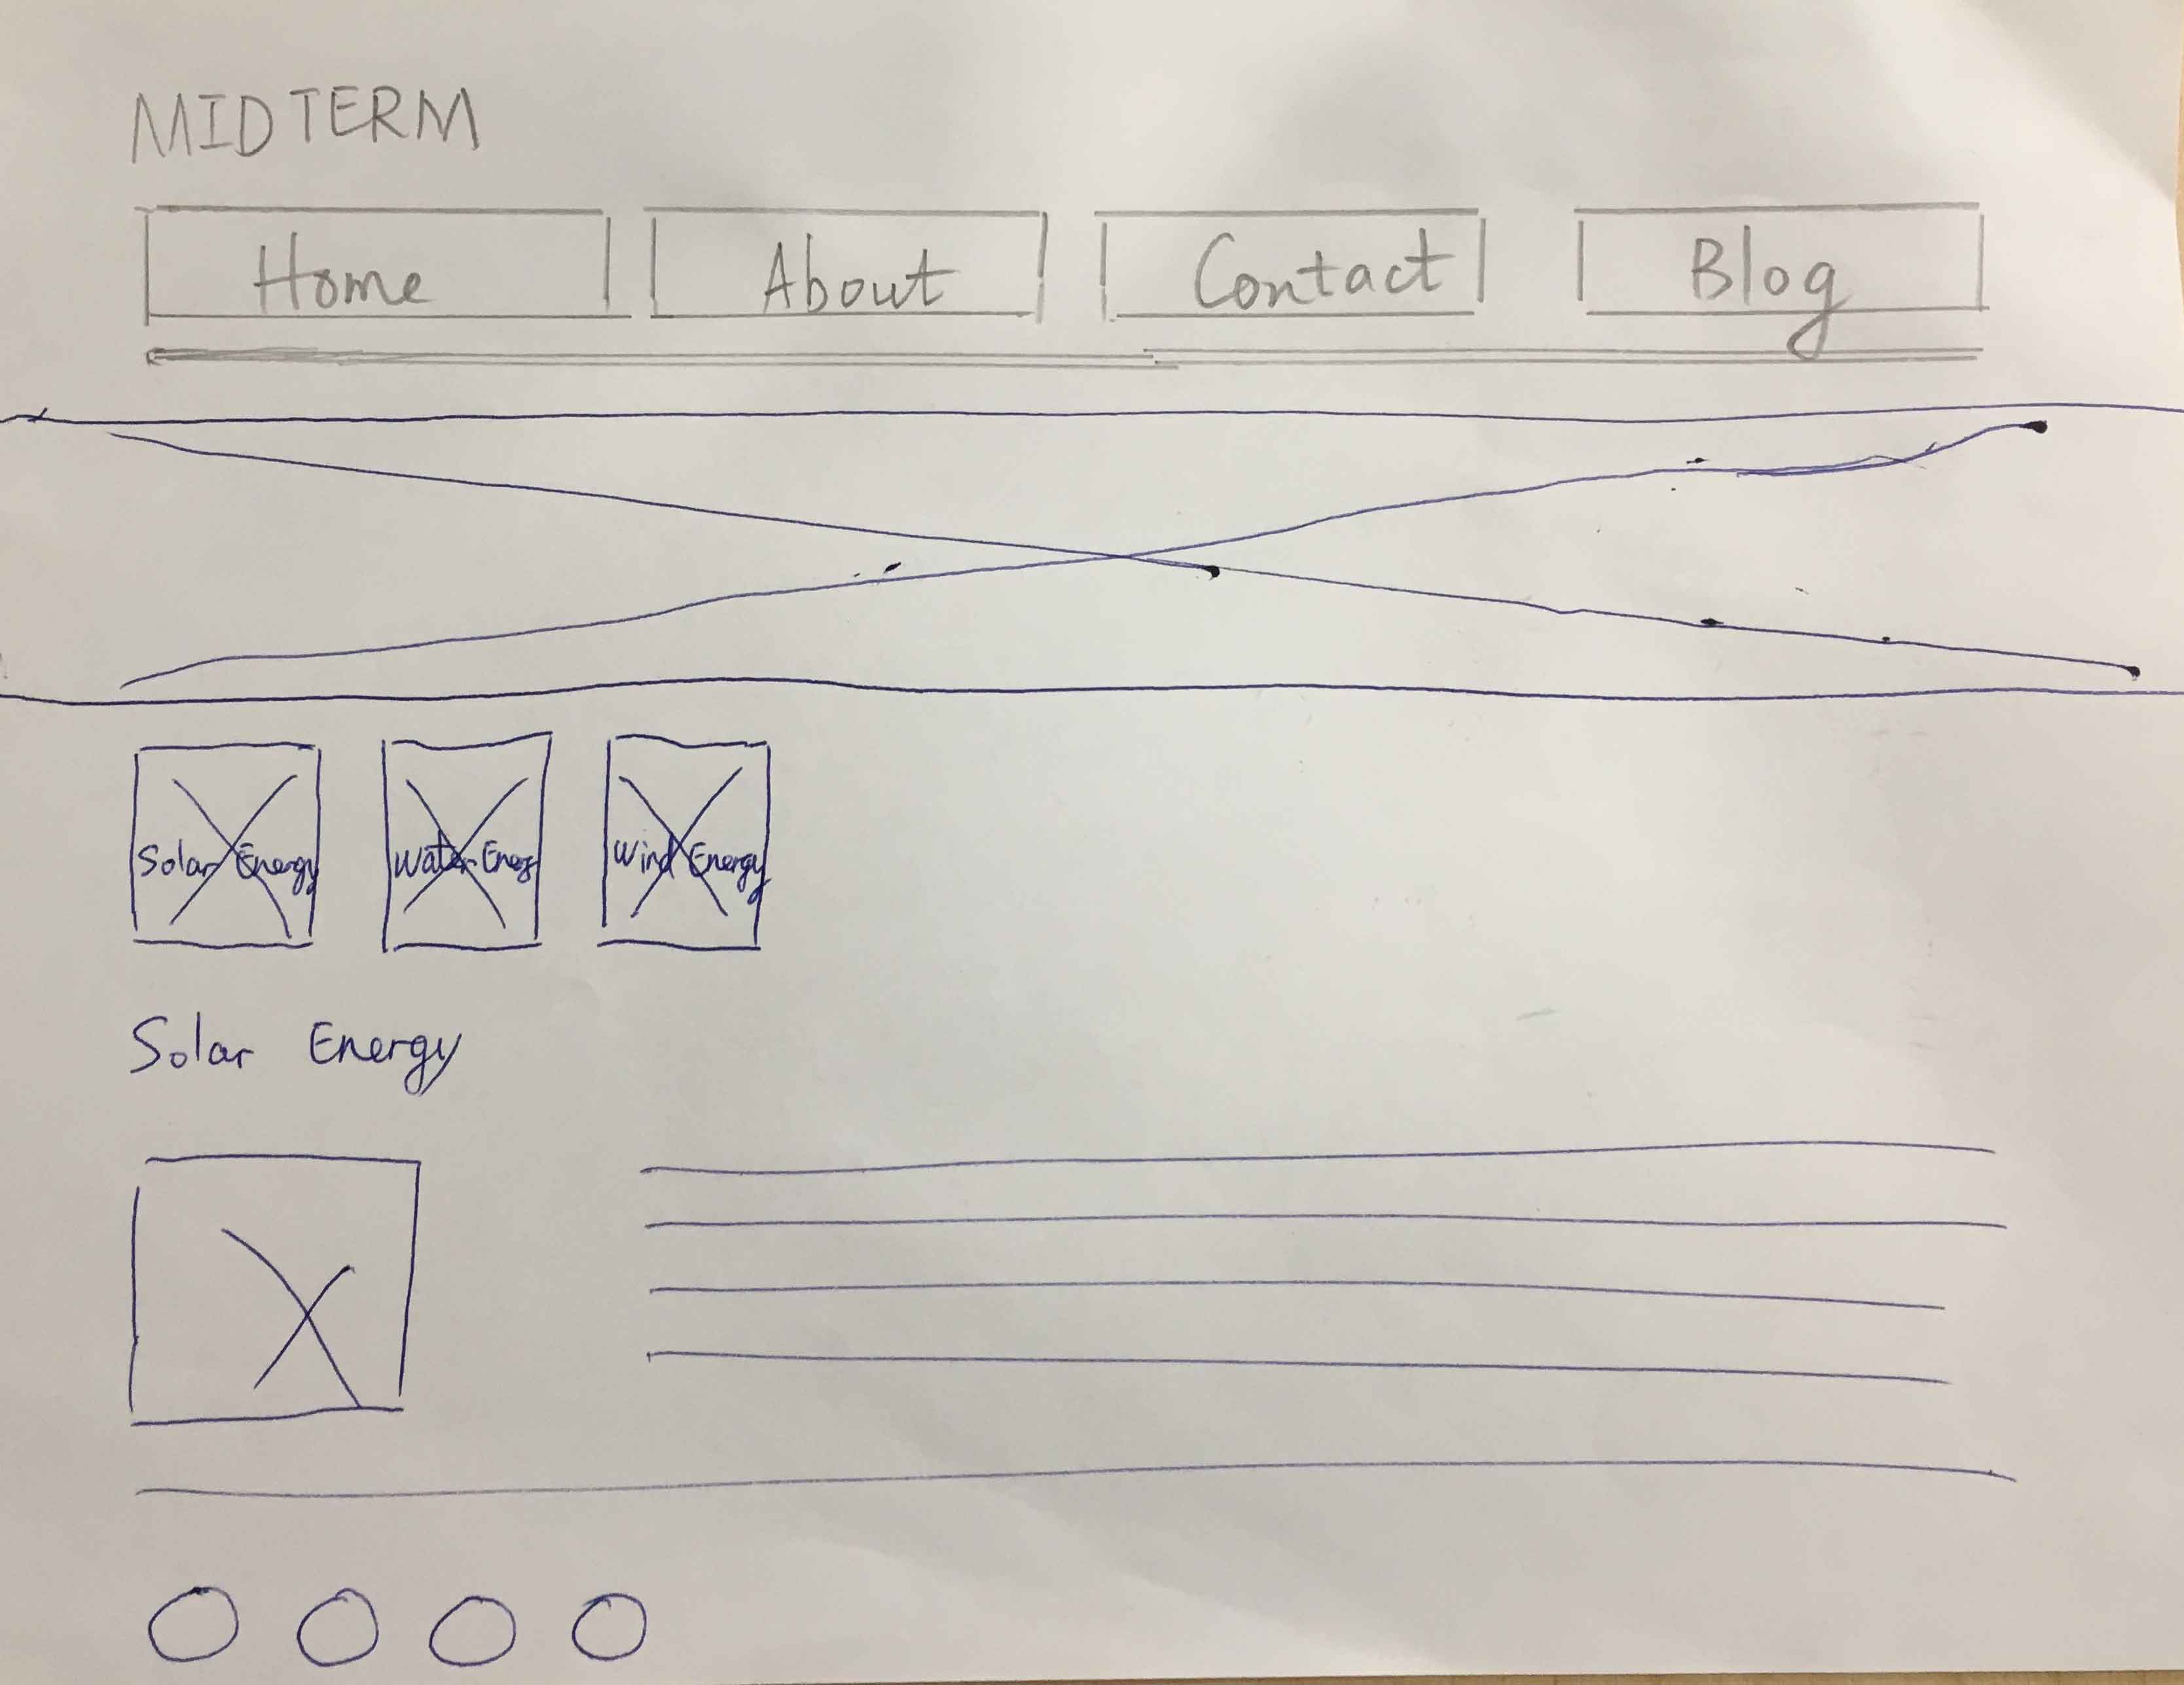 MIDTERM
Home About Contact Blog
Solar Energy Water Energ Wind Energy
Solar Energy